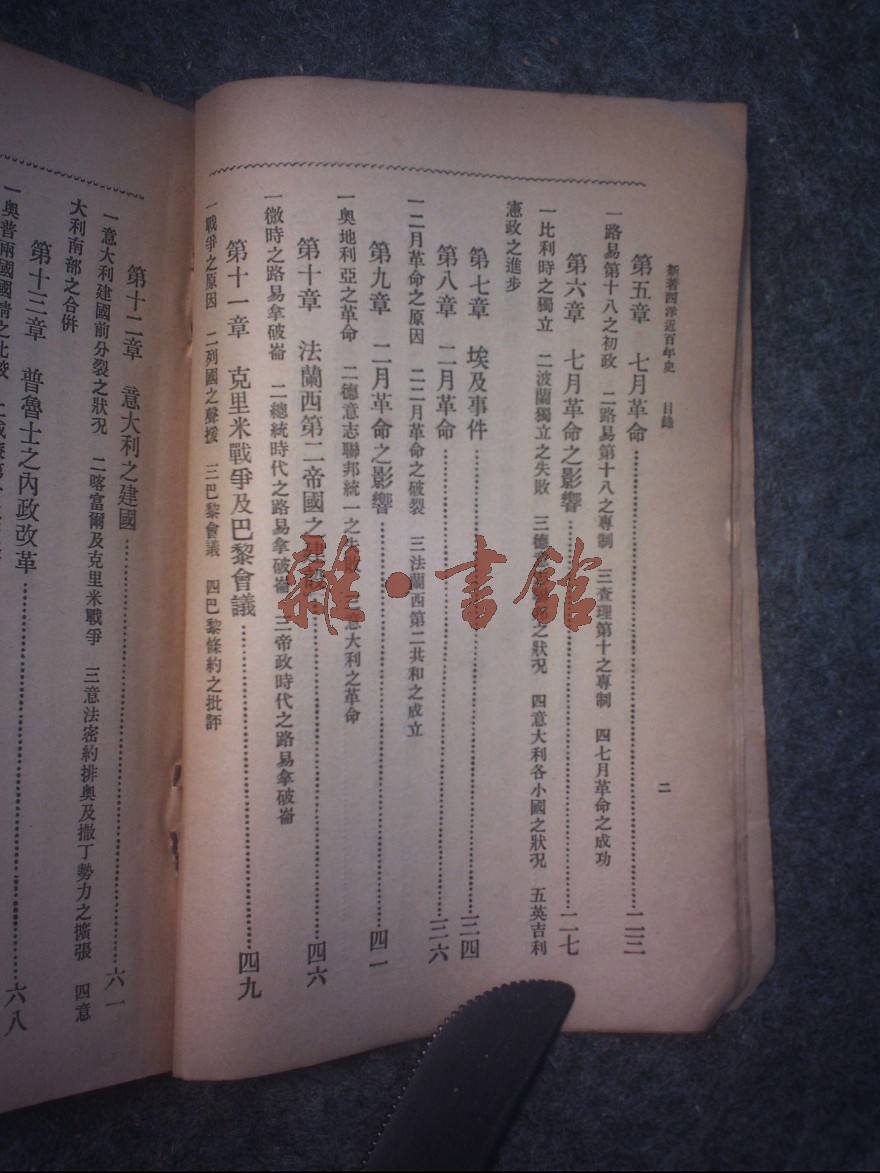 新著西洋近百年史 目錄 二
第五章 七月革命……二三
一路易第十八之初政 二路易第十八之專制 三查理第十之專制 四七月革命之成功
第六章 七月革命之影響……二七
一比利時之獨立 二波蘭獨立之失敗 三德意志 之狀況 四意大利各小國之狀況 五英吉利
憲政之進步
第七章 埃及事件……三四
第八章 二月革命……三六
一二月革命之原因 二二月革命之破裂 三法蘭西第二共和之成立
第九章 二月革命之影響……四一
一奧地利亞之革命 二德意志聯邦統一之失敗 三意大利之革命
第十章 法蘭西第二帝國之建設……四六
一微時之路易拿破崙 二總統時代之路易拿破崙 三帝政時代之路易拿破崙
第十一章 克里米戰爭及巴黎會議……四九
一戰爭之原因 二列國之聲援 三巴黎會議 四巴黎條約之批評
第十二章 意大利之建國……六一
一意大利建國前分裂之狀況 二喀富爾及克里米戰爭 三意法密約排奧及撒丁勢力之擴張 四意
大利南部之合併
第十三章 普魯士之內政改革……六八
一奧普兩國國情之比較
雜·書館